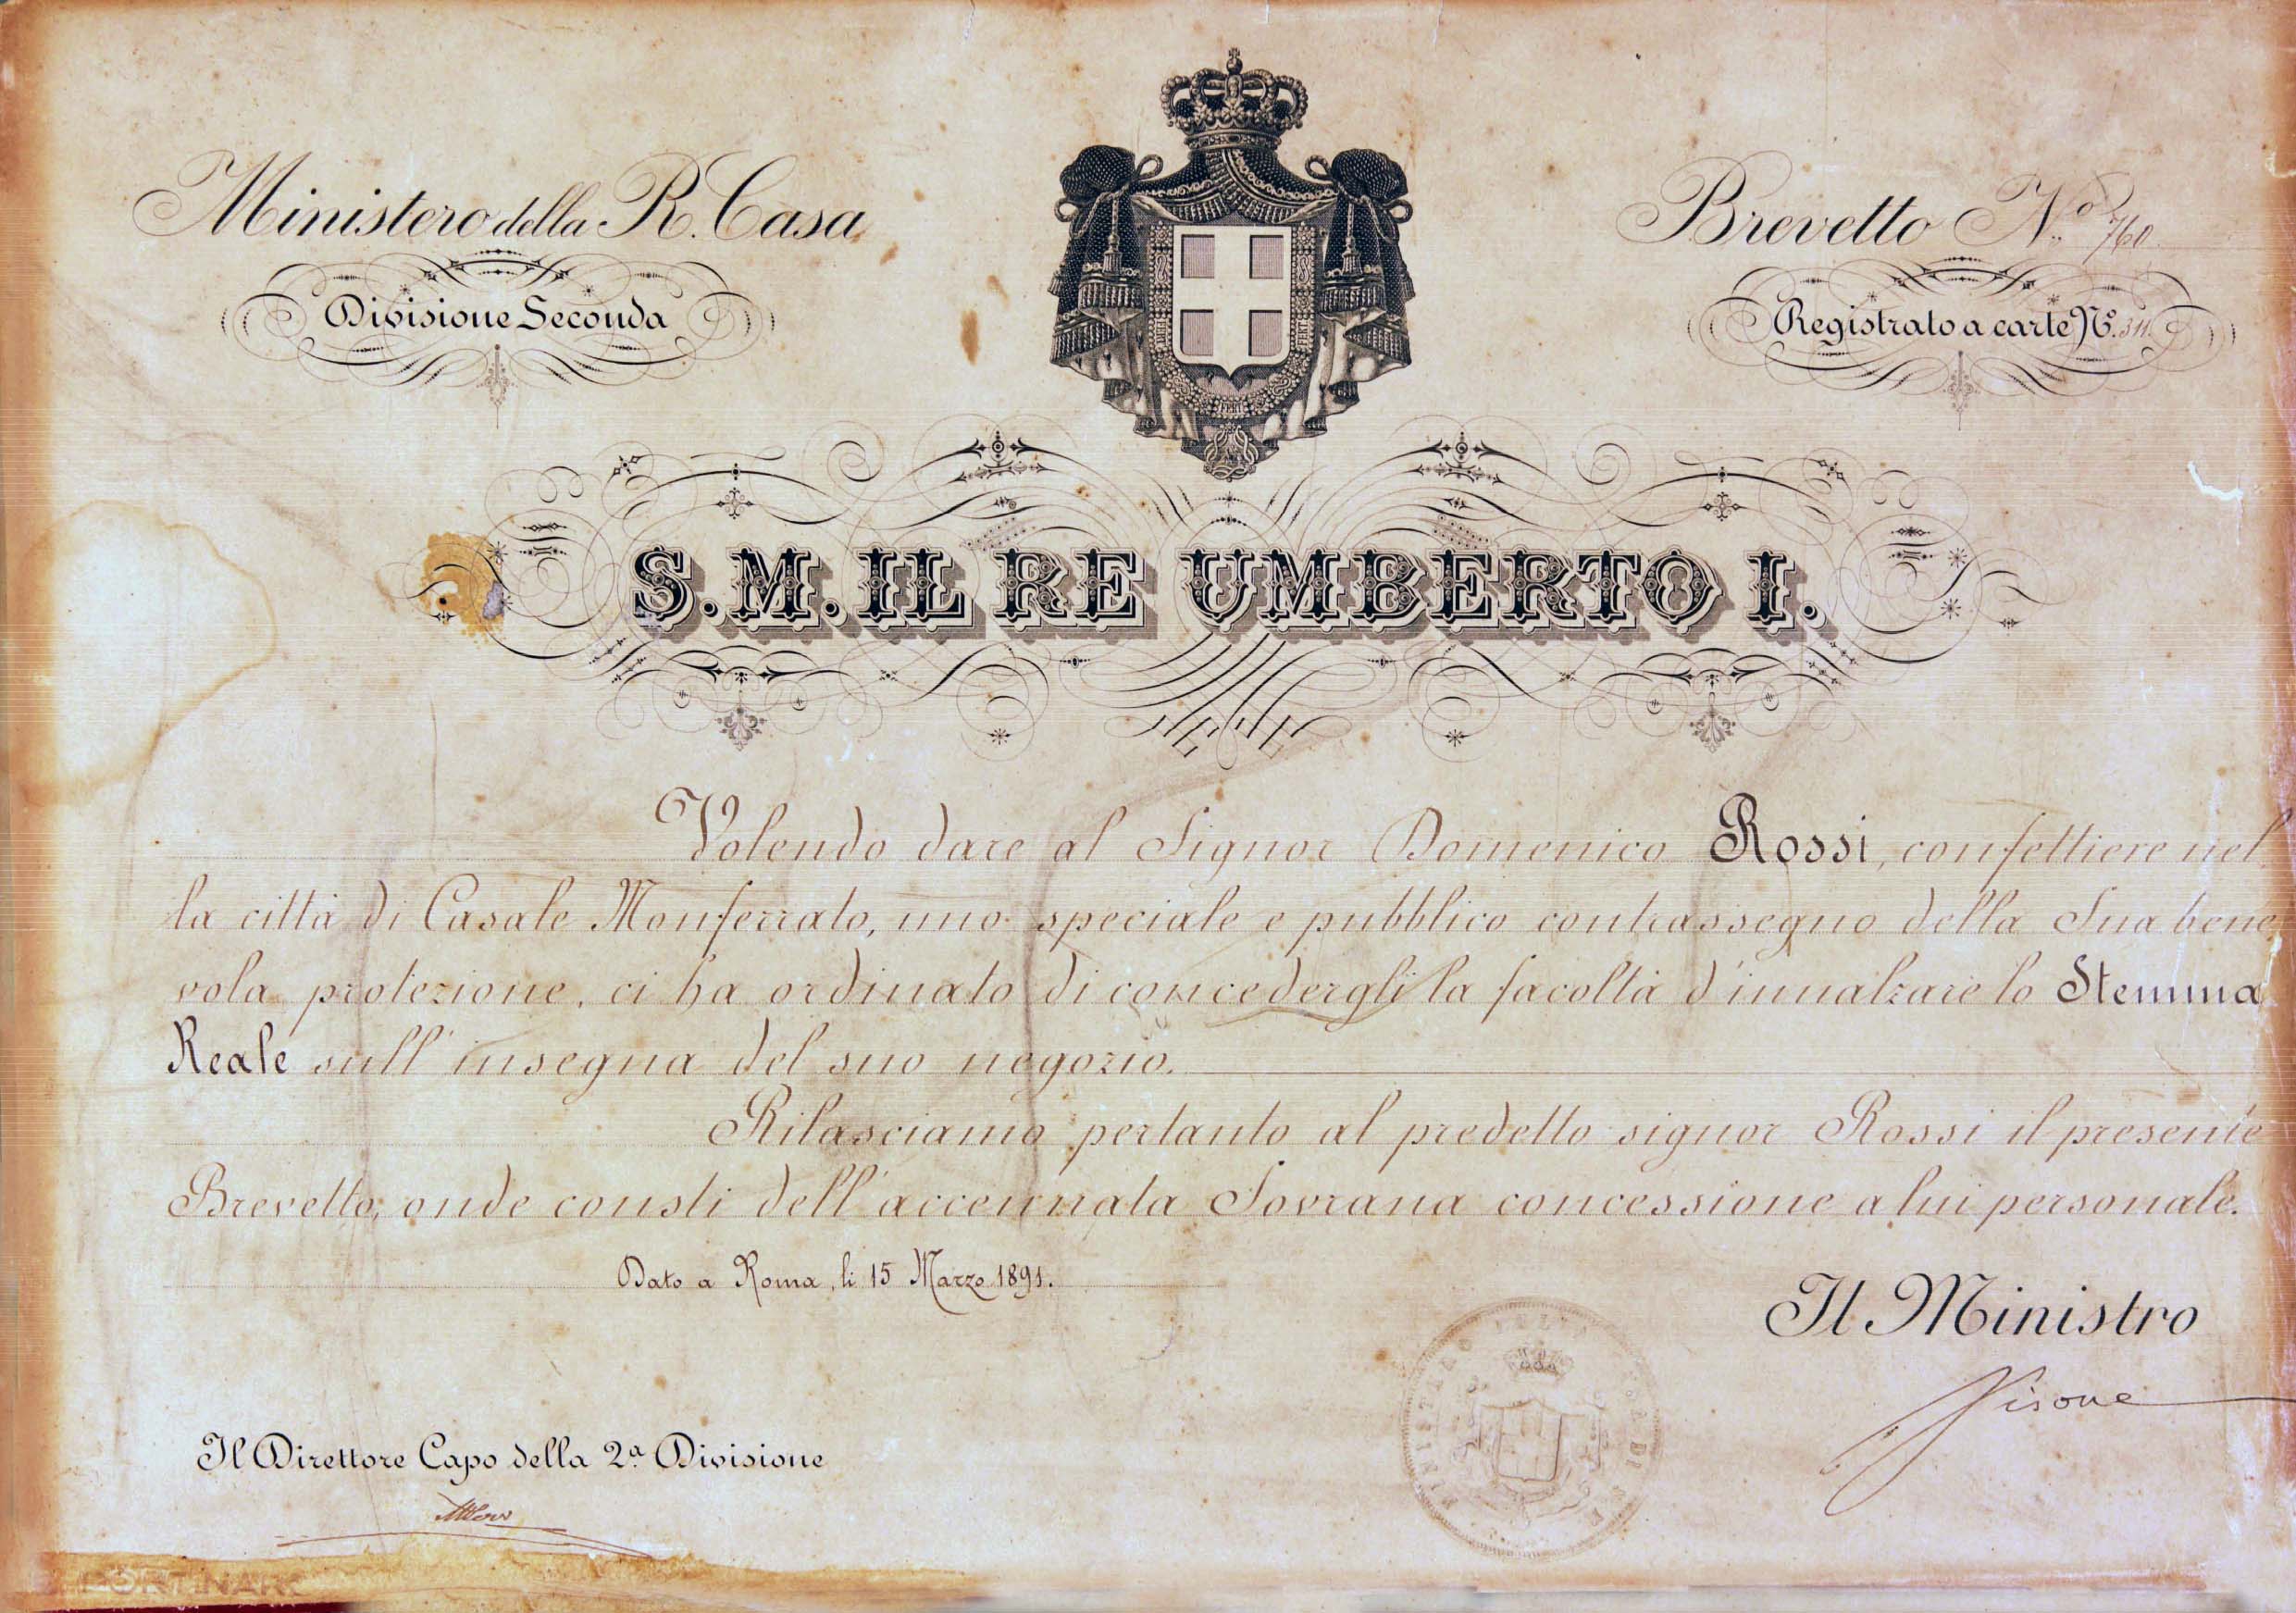 Ministero della R. Casa
Divisione Seconda
Brevetto N.º 760
Registrato a carte Nº. 311.
FERT
S. M. IL RE UMBERTO I.
Volendo dare al Signor Domenico Rossi, confettiere nel
la città di Casale Monferrato, uno speciale e pubblico contrassegno della Sua bene
vola protezione, ci ha ordinato di concedergli la facoltà d'innalzare lo Stemma
Reale sull'insegna del suo negozio.
Rilasciamo pertanto al predetto signor Rossi il presente
Brevetto, onde consti dell'accennata Sovrana concessione a lui personale.
Dato a Roma, li 15 Marzo 1891.
Il Ministro
Visone
Il Direttore Capo della 2ª Divisione